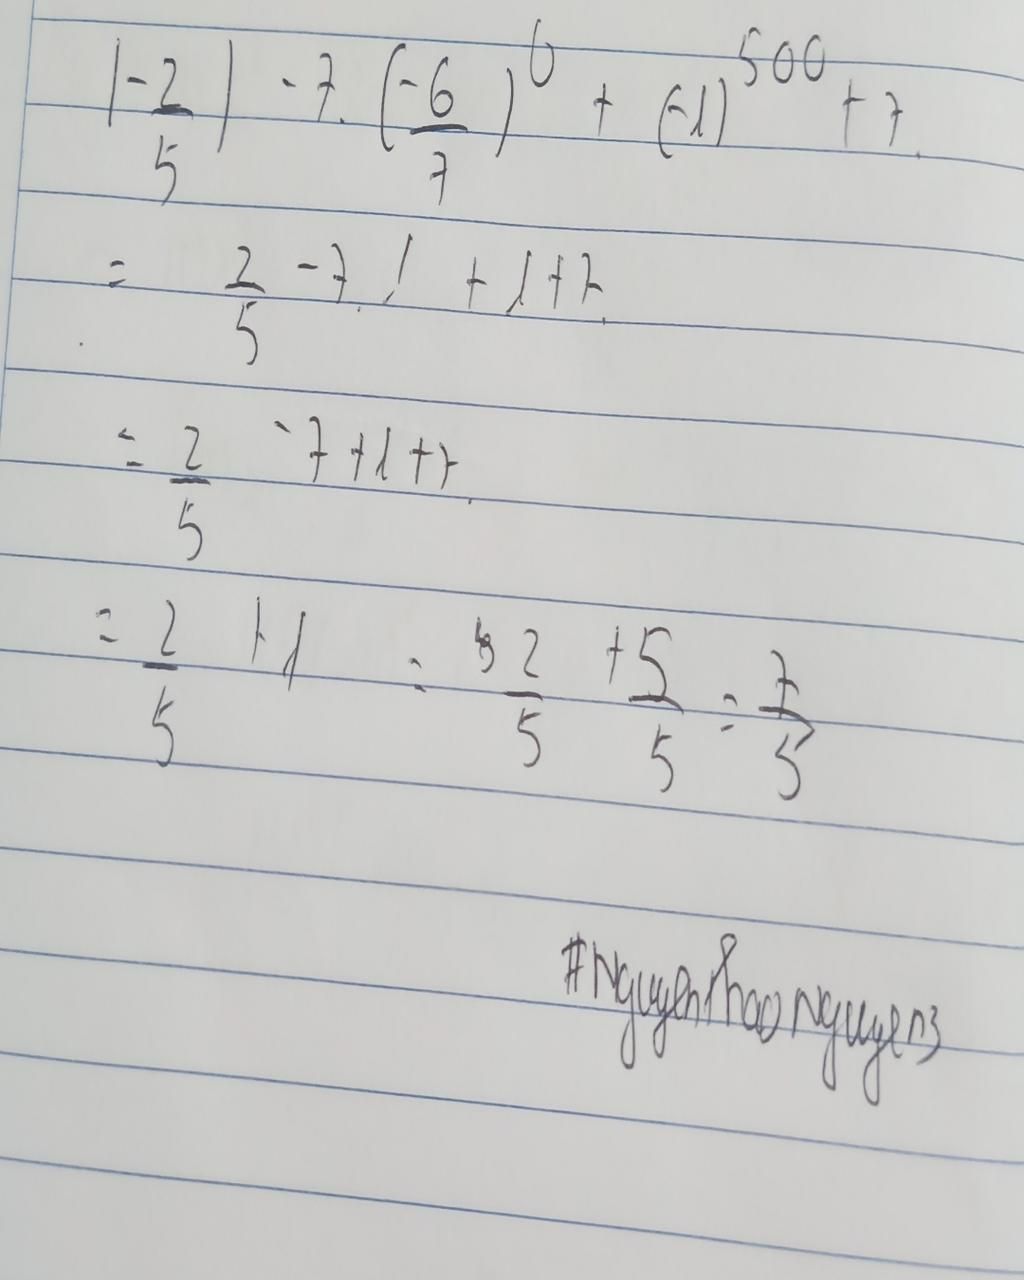 |-2/5| - 7. (-6/7)^0 + (-1)^500 + 7.
= 2/5 - 7. 1 + 1 + 7.
= 2/5 - 7 + 1 + 7.
= 2/5 + 1 = 2/5 + 5/5 = 7/5
#NguyenThaoNguyen3